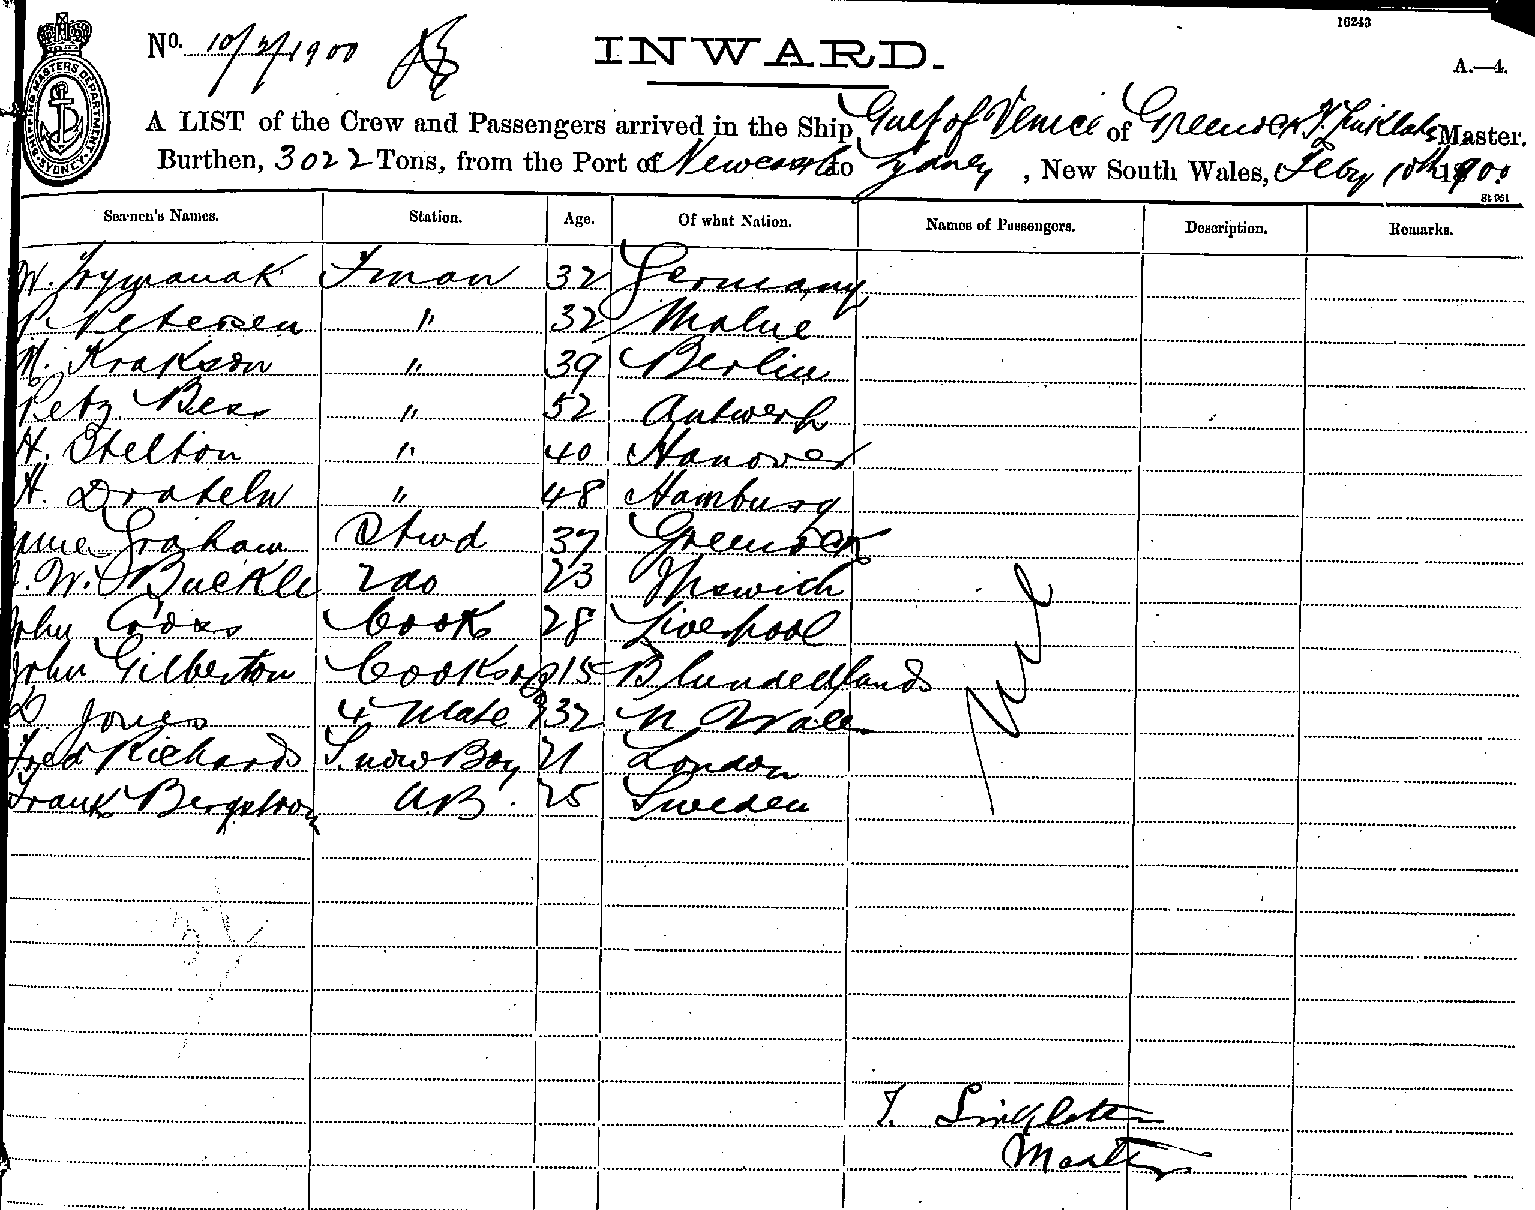 No. 10/2/1900 INWARD. 16243
A.—4.
SHIPPING MASTERS DEPARTMENT SYDNEY
A LIST of the Crew and Passengers arrived in the Ship Gulf of Venice of Greenock Master.
Burthen, 3022 Tons, from the Port of Newcastle to Sydney, New South Wales, Feby 10th 1900.
Seamen's Names. Station. Age. Of what Nation. Names of Passengers. Description. Remarks.
Fman 32 Germany
P. Petersen " 32
Krakson " 39 Berlin
Bess " 52 Antwerp
H. Stelton " 40 Hanover
H. Drateln " 48 Hamburg
Graham Stwd 37 Greenock
J. W. Buckle 2 do 23 Ipswich
John Cross Cook 28 Liverpool
John Gilberton Cooks 15
D Jones 4 Mate 32 N Wales
Fred Richards 21 London
Frank Bergstrom A.B. 25 Sweden
Nil
Master